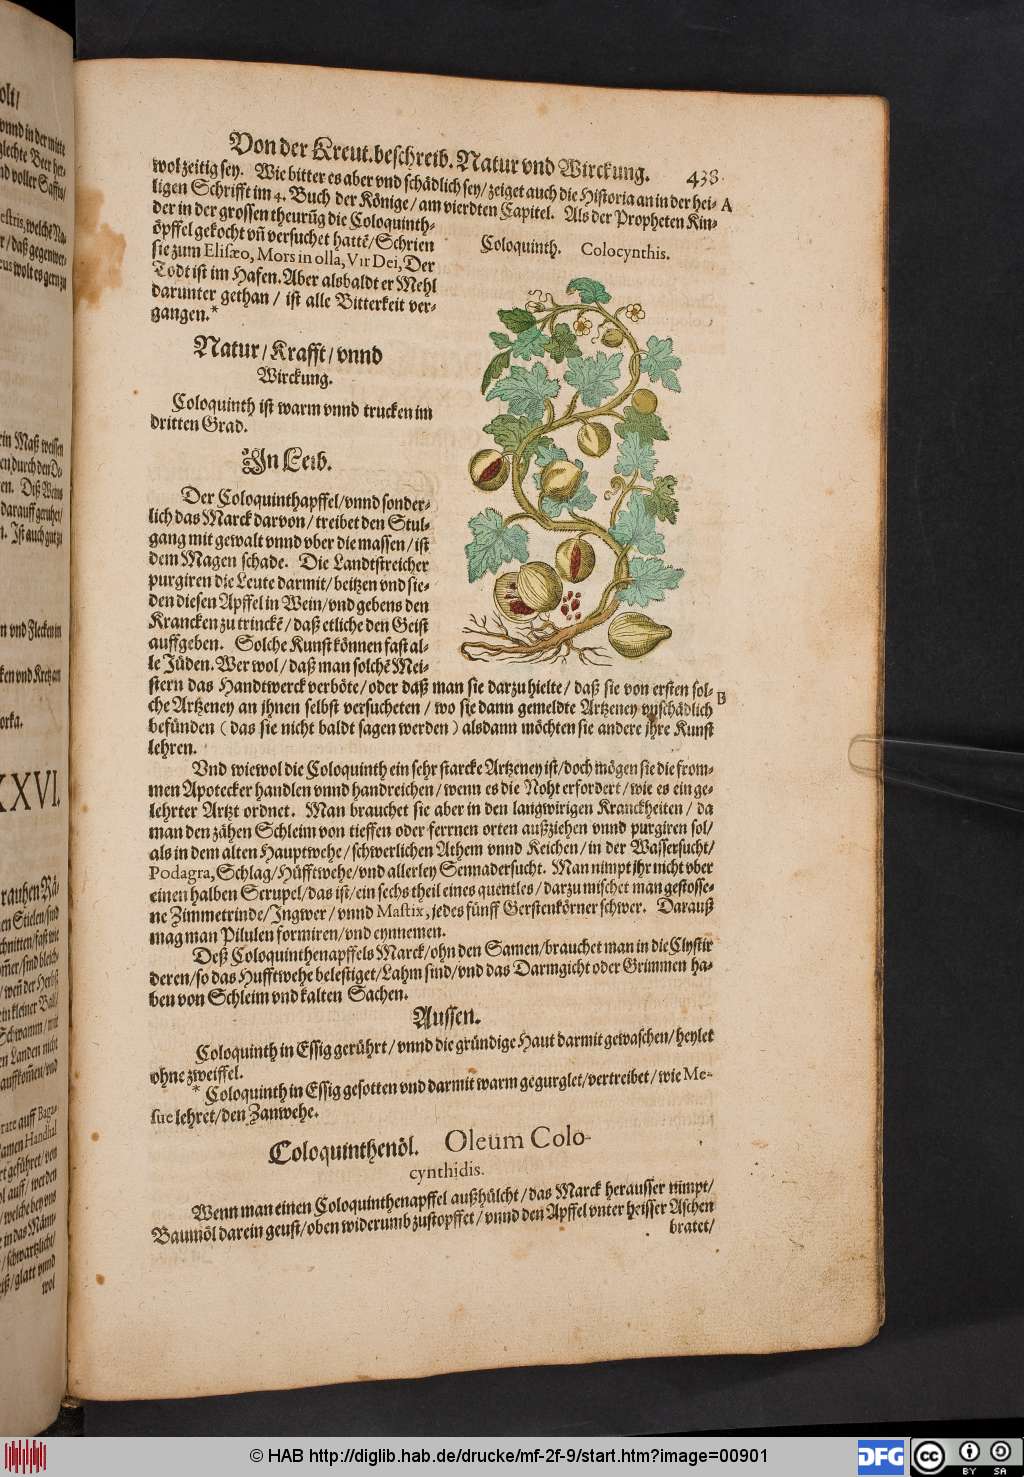 Von der Kreut. beschreib. Natur vnd Wirckung. 438
wol zeitig sey. Wie bitter es aber vnd schädlich sey/ zeiget auch die Historia an in der hei- A
ligen Schrifft im 4. Buch der Könige/ am vierdten Capitel. Als der Propheten Kin-
der in der grossen theurūg die Coloquinth-
öpffel gekocht vñ versuchet hattē/ Schrien
sie zum Elisæo, Mors in olla, Vir Dei, Der
Todt ist im Hafen. Aber alsbaldt er Mehl
darunter gethan/ ist alle Bitterkeit ver-
gangen.*
Coloquinth. Colocynthis.
Natur/ Krafft/ vnnd
Wirckung.
Coloquinth ist warm vnnd trucken im
dritten Grad.
In Leib.
Der Coloquinthapffel/ vnnd sonder-
lich das Marck darvon/ treibet den Stul-
gang mit gewalt vnnd vber die massen/ ist
dem Magen schade. Die Landtstreicher
purgiren die Leute darmit/ beitzen vnd sie-
den diesen Apffel in Wein/ vnd gebens den
Krancken zu trinckē/ daß etliche den Geist
auffgeben. Solche Kunst können fast al-
le Jüden. Wer wol/ daß man solchē Mei-
stern das Handtwerck verböte/ oder daß man sie darzu hielte/ daß sie von ersten sol- B
che Artzeney an jhnen selbst versucheten/ wo sie dann gemeldte Artzeney vnschädlich
befünden (das sie nicht baldt sagen werden) alsdann möchten sie andere jhre Kunst
lehren.
Vnd wiewol die Coloquinth ein sehr starcke Artzeney ist/ doch mögen sie die from-
men Apotecker handlen vnnd handreichen/ wenn es die Noht erfordert/ wie es ein ge-
lehrter Artzt ordnet. Man brauchet sie aber in den langwirigen Kranckheiten/ da
man den zähen Schleim von tieffen oder ferrnen orten außziehen vnnd purgiren sol/
als in dem alten Hauptwehe/ schwerlichen Athem vnnd Keichen/ in der Wassersucht/
Podagra, Schlag/ Hüfftwehe/ vnd allerley Sennadersucht. Man nimpt jhr nicht vber
einen halben Scrupel/ das ist/ ein sechs theil eines quentles/ darzu mischet man gestosse-
ne Zimmetrinde/ Ingwer/ vnnd Mastix, jedes fünff Gerstenkörner schwer. Darauß
mag man Pilulen formiren/ vnd eynnemen.
Deß Coloquinthenapffels Marck/ ohn den Samen/ brauchet man in die Clystir
deren/ so das Hufftwehe belestiget/ Lahm sind/ vnd das Darmgicht oder Grimmen ha-
ben von Schleim vnd kalten Sachen.
Aussen.
Coloquinth in Essig gerührt/ vnnd die gründige Haut darmit gewaschen/ heylet
ohne zweiffel.
* Coloquinth in Essig gesotten vnd darmit warm gegurglet/ vertreibet/ wie Me-
sue lehret/ den Zanwehe.
Coloquinthenöl. Oleum Colo-
cynthidis.
Wenn man einen Coloquinthenapffel außhülcht/ das Marck herausser nimpt/
Baumöl darein geust/ oben widerumb zustopffet/ vnnd den Apffel vnter heisser Aschen
bratet/
© HAB http://diglib.hab.de/drucke/mf-2f-9/start.htm?image=00901
DFG
cc
BY SA